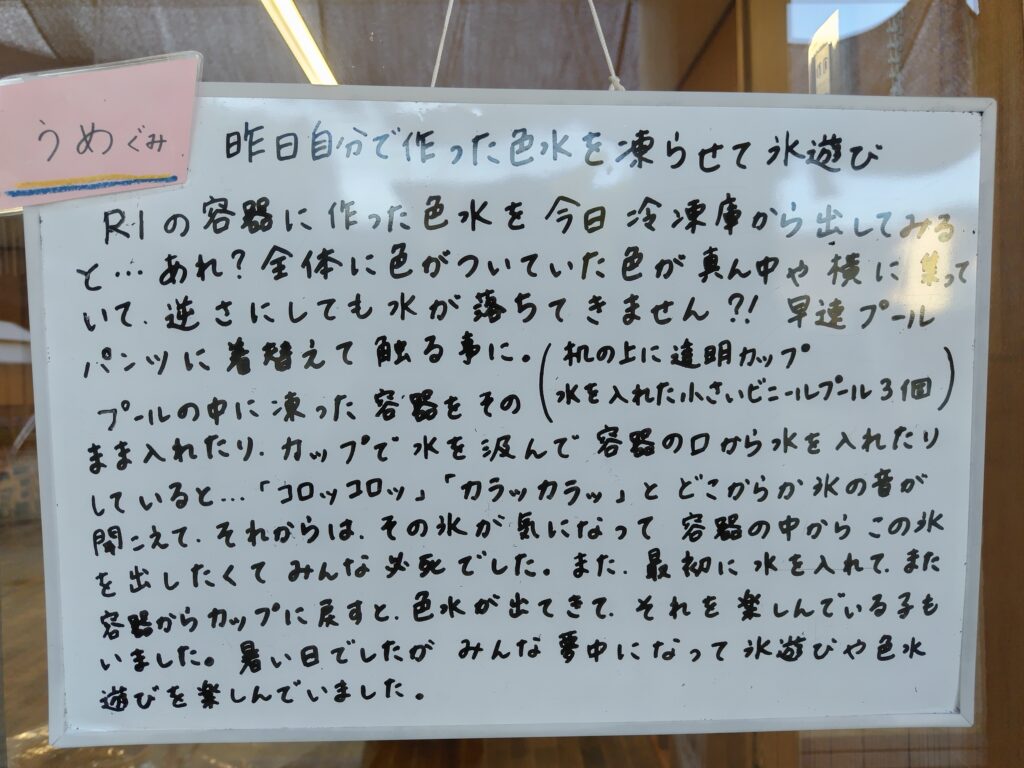 うめぐみ
昨日自分で作った色水を凍らせて氷遊び
R1の容器に作った色水を今日冷凍庫から出してみる
と…あれ？全体に色がついていた色が真ん中や横に集って
いて、逆さにしても水が落ちてきません?! 早速プール
パンツに着替えて触る事に。(机の上に透明カップ
水を入れた小さいビニールプール3個)
プールの中に凍った容器をその
まま入れたり、カップで水を汲んで容器の口から水を入れたり
していると…「コロッコロッ」「カラッカラッ」とどこからか氷の音が
聞こえて、それからは、その氷が気になって容器の中からこの氷
を出したくてみんな必死でした。また、最初に水を入れて、また
容器からカップに戻すと、色水が出てきて、それを楽しんでいる子も
いました。暑い日でしたがみんな夢中になって氷遊びや色水
遊びを楽しんでいました。